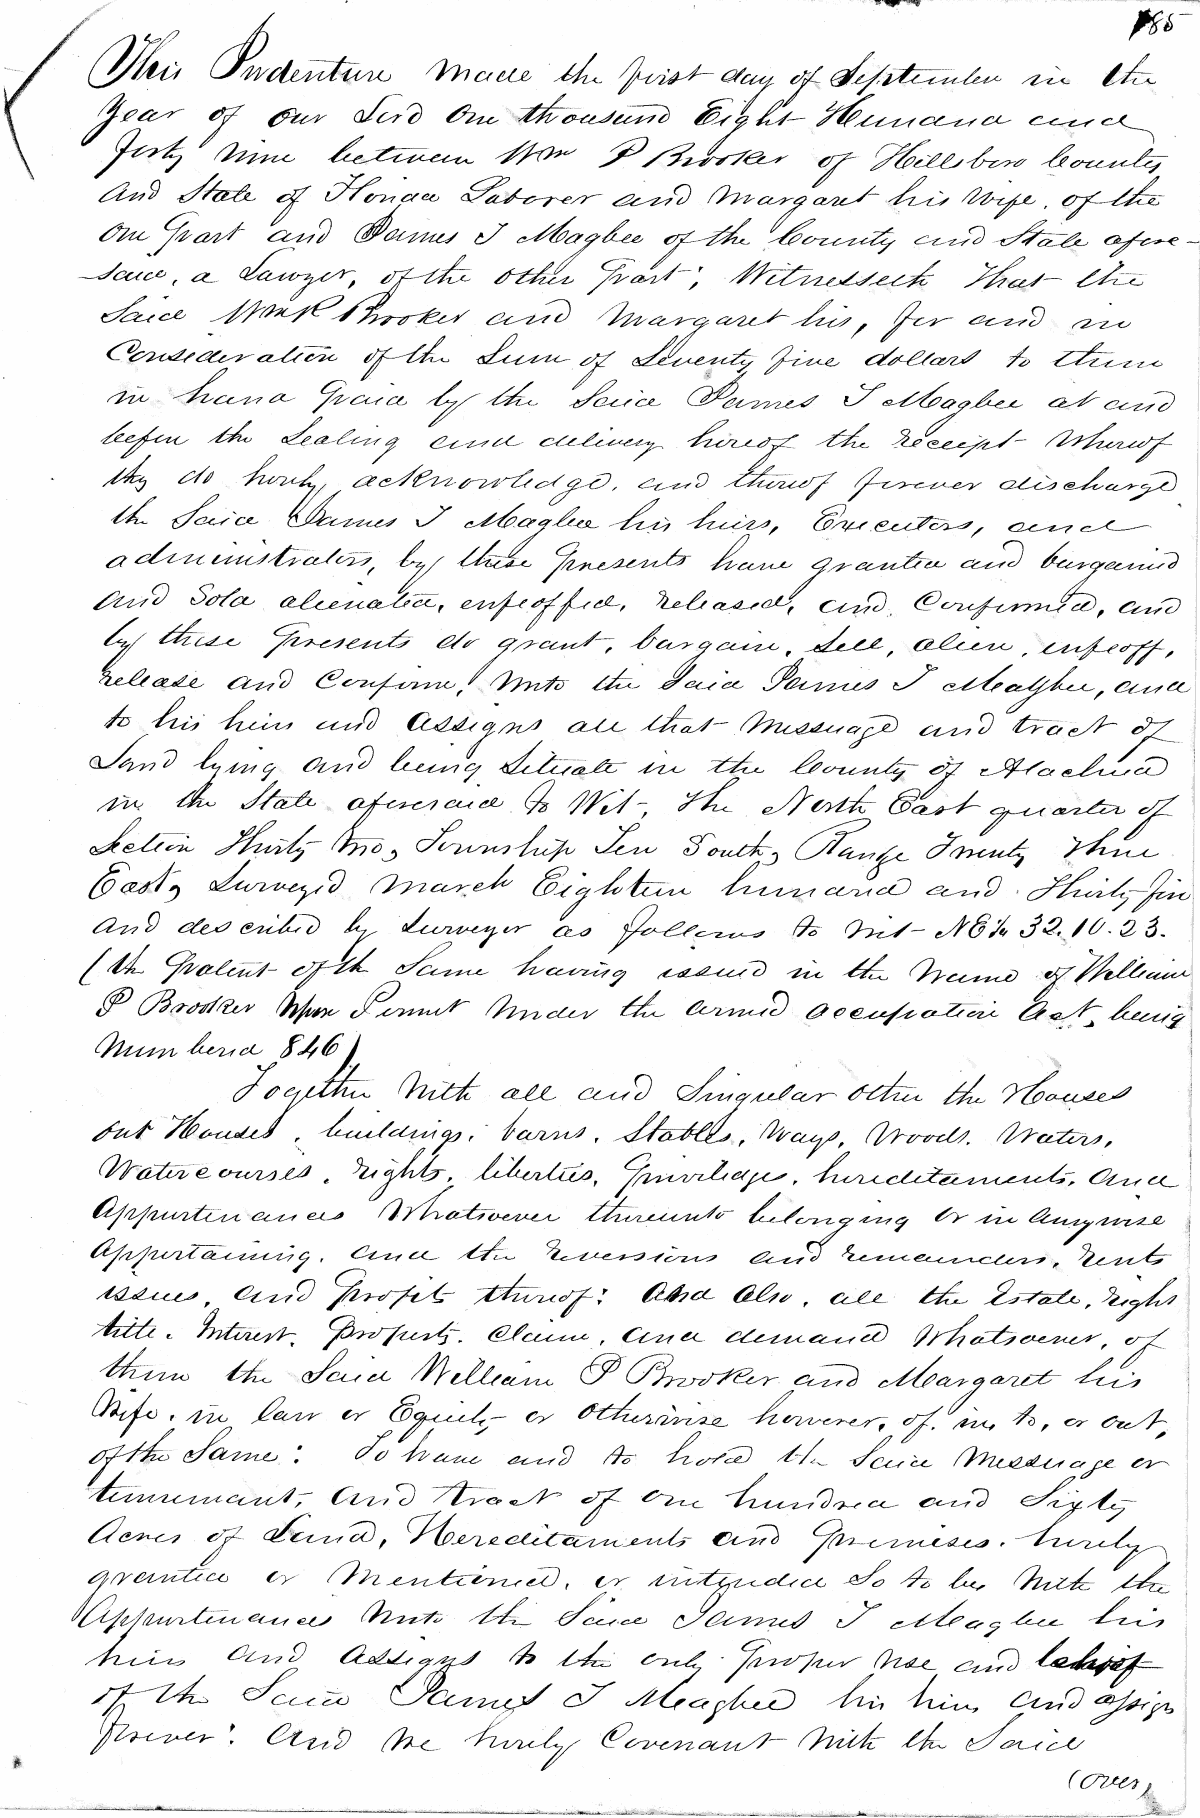 185
This Indenture made the first day of September in the
Year of our Lord One thousand Eight Hundred and
forty nine between Wm P Brooker of Hillsboro County
and State of Florida Laborer and Margaret his wife, of the
one part and James T Magbee of the County and State afore-
said, a Lawyer, of the other part; Witnesseth That the
Said Wm P Brooker and Margaret his, for and in
Consideration of the Sum of Seventy five dollars to them
in hand paid by the Said James T Magbee at and
before the Sealing and delivery hereof the receipt whereof
they do hereby acknowledge, and thereof forever discharge
the Said James T Magbee his heirs, Executors, and
administrators, by these presents have granted and bargained
and Sold alienated, enfeoffed, released, and Confirmed, and
by these presents do grant, bargain, Sell, alien, enfeoff,
release and Confirm, Unto the Said James T Magbee, and
to his heirs and assigns all that Messuage and tract of
Land lying and being Situate in the County of Alachua
in the State aforesaid to Wit, The North East quarter of
Section Thirty two, Township Ten South, Range Twenty three
East, Surveyed March Eighteen hundred and Thirty five
and described by Surveyor as follows to wit - NE¼ 32.10.23.
(the Patent of the Same having issued in the Name of William
P Brooker Upon Permit Under the armed occupation Act, being
Numbered 846)
Together With all and Singular other the Houses
out Houses, buildings, barns, Stables, Ways, Woods, Waters,
Watercourses, rights, liberties, priviledges, hereditaments, and
Appurtenances Whatsoever thereunto belonging or in anywise
Appertaining, and the reversions and remainders, rents
issues, and profits thereof: And Also, all the Estate, right
title, Interest, Property, Claim, and demand Whatsoever, of
them the Said William P Brooker and Margaret his
Wife, in law or Equity or otherwise however, of, in, to, or out,
of the Same: To have and to hold the Said Messuage or
tenemant, and tract of one hundred and Sixty
Acres of Land, Hereditaments and Premises, hereby
granted or Mentioned, or intended So to be, With the
Appurtenances Unto the Said James T Magbee his
heirs and Assigns to the only proper use and behoof
of the Said James T Magbee his heirs and assigns
forever: And We hereby Covenant With the Said
(over)